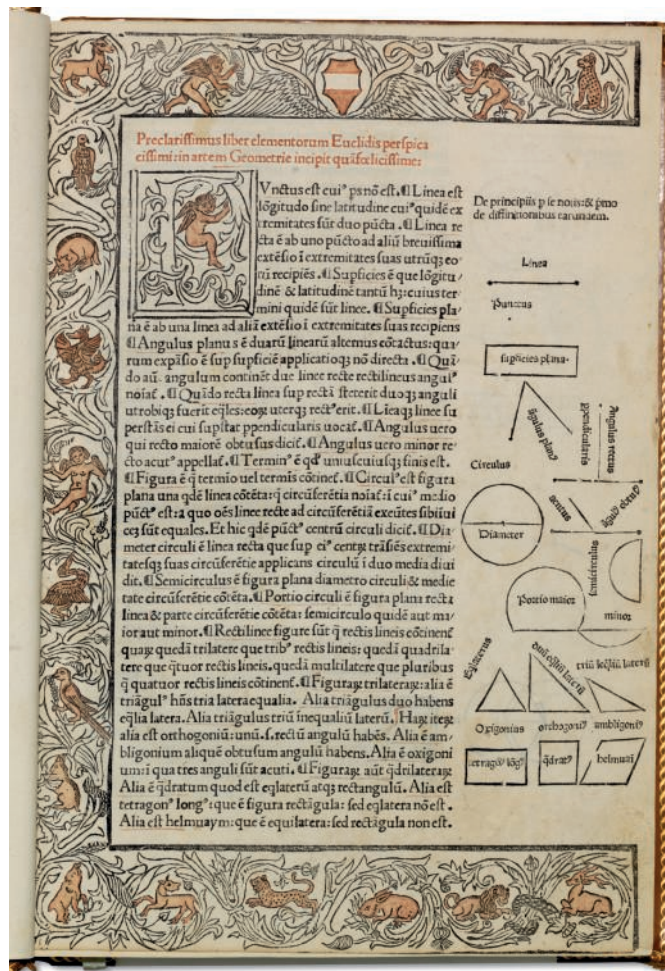 Preclarissimus liber elementorum Euclidis perspica
cissimi: in artem Geometrie incipit quāfoelicissime:
Vnctus est cuiꝰ ps nō est. ¶ Linea est
lōgitudo sine latitudine cuiꝰ quidē ex
tremitates sūt duo pūcta. ¶ Linea re
cta ē ab uno pūcto ad aliū breuissima
extēsio ī extremitates suas utrūqꝫ eo
rū recipiēs. ¶ Supficies ē que lōgitu
dinē & latitudinē tantū hꝫ: cuius ter
mini quidē sūt linee. ¶ Supficies pla
na ē ab una linea ad aliā extēsio ī extremitates suas recipiens
¶ Angulus planus ē duarū linearū alternus cōtactus: qua
rum expāsio ē sup supficiē applicatioqꝫ nō directa. ¶ Quā
do aū angulum continēt due linee recte rectilineus anguiꝰ
noiat̄. ¶ Quādo recta linea sup rectā steterit duoqꝫ anguli
utrobiqꝫ fuerit eq̄les: eoꝝ uterqꝫ rectꝰ erit. ¶ Lieaqꝫ linee su
perstās ei cui supstat ppendicularis uocat̄. ¶ Angulus uero
qui recto maiorē obtusus dicit̄. ¶ Angulus uero minor re
cto acutꝰ appellat̄. ¶ Terminꝰ ē qd̄ uniuscuiusqꝫ finis est.
¶ Figura ē q̄ termio uel termīs cōtinet̄. ¶ Circulꝰ est figura
plana una qdē linea cōtēta: q̄ circūferētia noiat̄: ī cuiꝰ medio
pūctꝰ est: a quo oēs linee recte ad circūferētiā exeūtes sibiiui
ceꝫ sūt equales. Et hic qdē pūctꝰ centrū circuli dicit̄. ¶ Dia
meter circuli ē linea recta que sup eiꝰ centꝝ trāsiēs extremi
tatesqꝫ suas circūferētie applicans circulū ī duo media diui
dit. ¶ Semicirculus ē figura plana diametro circuli & medie
tate circūferētie cōtēta. ¶ Portio circuli ē figura plana recta
linea & parte circūferētie cōtēta: semicirculo quidē aut ma
ior aut minor. ¶ Rectilinee figure sūt q̄ rectis lineis cōtinent̄
quaꝝ quedā trilatere que tribꝰ rectis lineis: quedā quadrila
tere que q̄tuor rectis lineis. quedā multilatere que pluribus
q̄ quatuor rectis lineis cōtinent̄. ¶ Figuraꝝ trilateraꝝ: alia ē
triāgulꝰ hn̄s tria latera equalia. Alia triāgulus duo habens
eq̄lia latera. Alia triāgulus triū inequaliū laterū. Haꝝ iteꝝ
alia est orthogoniū: unū .s. rectū angulū habēs. Alia ē am
bligonium aliquē obtusum angulū habens. Alia ē oxigoni
um: ī qua tres anguli sūt acuti. ¶ Figuraꝝ aūt q̄drilateraꝝ
Alia ē q̄dratum quod est eqlaterū atqꝫ rectangulū. Alia est
tetragonꝰ longꝰ: que ē figura rectāgula: sed eqlatera nō est.
Alia est helmuaym: que ē equilatera: sed rectāgula non est.
De principiis p se notis: & pmo
de diffinitionibus earundem.
Linea
Punctus
supficies plana.
āgulus planꝰ
ppendicularis
Angulus rectus
Circulus
acutus
āgulꝰ obtusꝰ
Diameter
semicirculus
Portio maior
minor
Eqlaterus
duū eq̄liū laterū
triū īeq̄liū laterū
Oxigonius
orthogoniꝰ
ambligoniꝰ
tetragōꝰ lōgꝰ
q̄dratꝰ
helmuaī